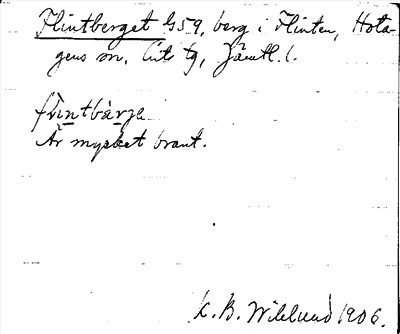 Flintberget G59, berg i Flinten, Hota-
gens sn, Lits tg, Jämtl. l.
flìntbàrje
Är mycket brant.
K. B. Wiklund 1906.